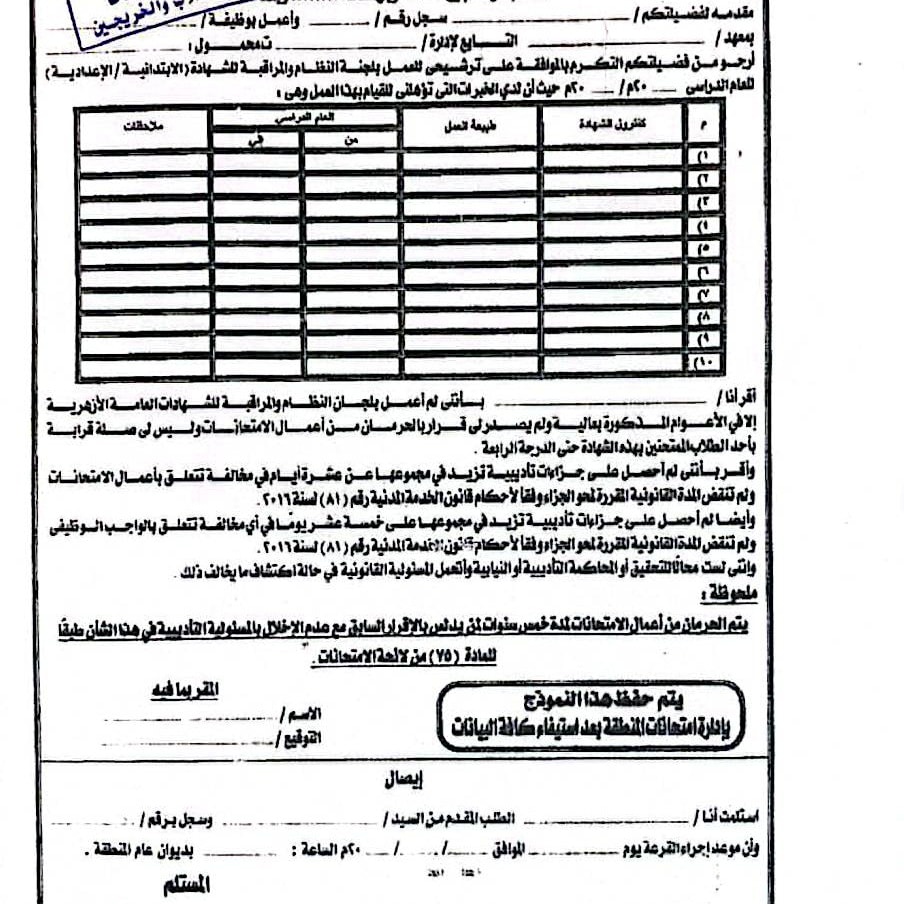 ب والخريجين
مقدمه لفضيلتكم / سجل رقم / وأعمل بوظيفة /
بمعهد / التابع لإدارة / ت محمول :
أرجو من فضيلتكم التكرم بالموافقة على ترشيحى للعمل بلجنة النظام والمراقبة للشهادة (الابتدائية / الإعدادية)
للعام الدراسى ٢٠م / ٢٠م حيث أن لدي الخبرات التى تؤهلنى للقيام بهذا العمل وهى :
م كنترول الشهادة طبيعة العمل العام الدراسى ملاحظات
من في
(١
(٢
(٣
(٤
(٥
(٦
(٧
(٨
(٩
(١٠
أقر أنا / بأننى لم أعمل بلجان النظام والمراقبة للشهادات العامة الأزهرية
إلا في الأعوام المذكورة بعالية ولم يصدر لى قرار بالحرمان من أعمال الامتحانات وليس لى صلة قرابة
بأحد الطلاب الممتحنين بهذه الشهادة حتى الدرجة الرابعة .
وأقر بأننى لم أحصل على جزاءات تأديبية تزيد في مجموعها عن عشرة أيام في مخالفة تتعلق بأعمال الامتحانات
ولم تنقض المدة القانونية المقررة لمحو الجزاء وفقاً لأحكام قانون الخدمة المدنية رقم (٨١) لسنة ٢٠١٦.
وأيضا لم أحصل على جزاءات تأديبية تزيد في مجموعها على خمسة عشر يوماً في أي مخالفة تتعلق بالواجب الوظيفى
ولم تنقض المدة القانونية المقررة لمحو الجزاء وفقاً لأحكام قانون الخدمة المدنية رقم (٨١) لسنة ٢٠١٦.
وإننى لست محالاً للتحقيق أو المحاكمة التأديبية أو النيابية وأتحمل المسئولية القانونية في حالة اكتشاف ما يخالف ذلك .
ملحوظة :
يتم الحرمان من أعمال الامتحانات لمدة خمس سنوات لمن يدلس بالإقرار السابق مع عدم الإخلال بالمسئولية التأديبية في هذا الشأن طبقًا
للمادة (٧٥) من لائحة الامتحانات .
يتم حفظ هذا النموذج
بإدارة امتحانات المنطقة بعد استيفاء كافة البيانات
المقر بما فيه
الاسم /
التوقيع /
إيصال
استلمت أنا / الطلب المقدم من السيد / وسجل برقم /
وأن موعد إجراء القرعة يوم الموافق / / ٢٠م الساعة : بديوان عام المنطقة .
المستلم